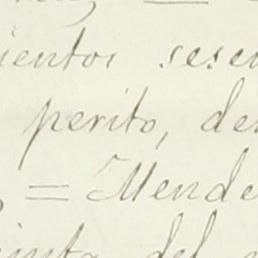 ientos sesen
perito, de
= Mende
del